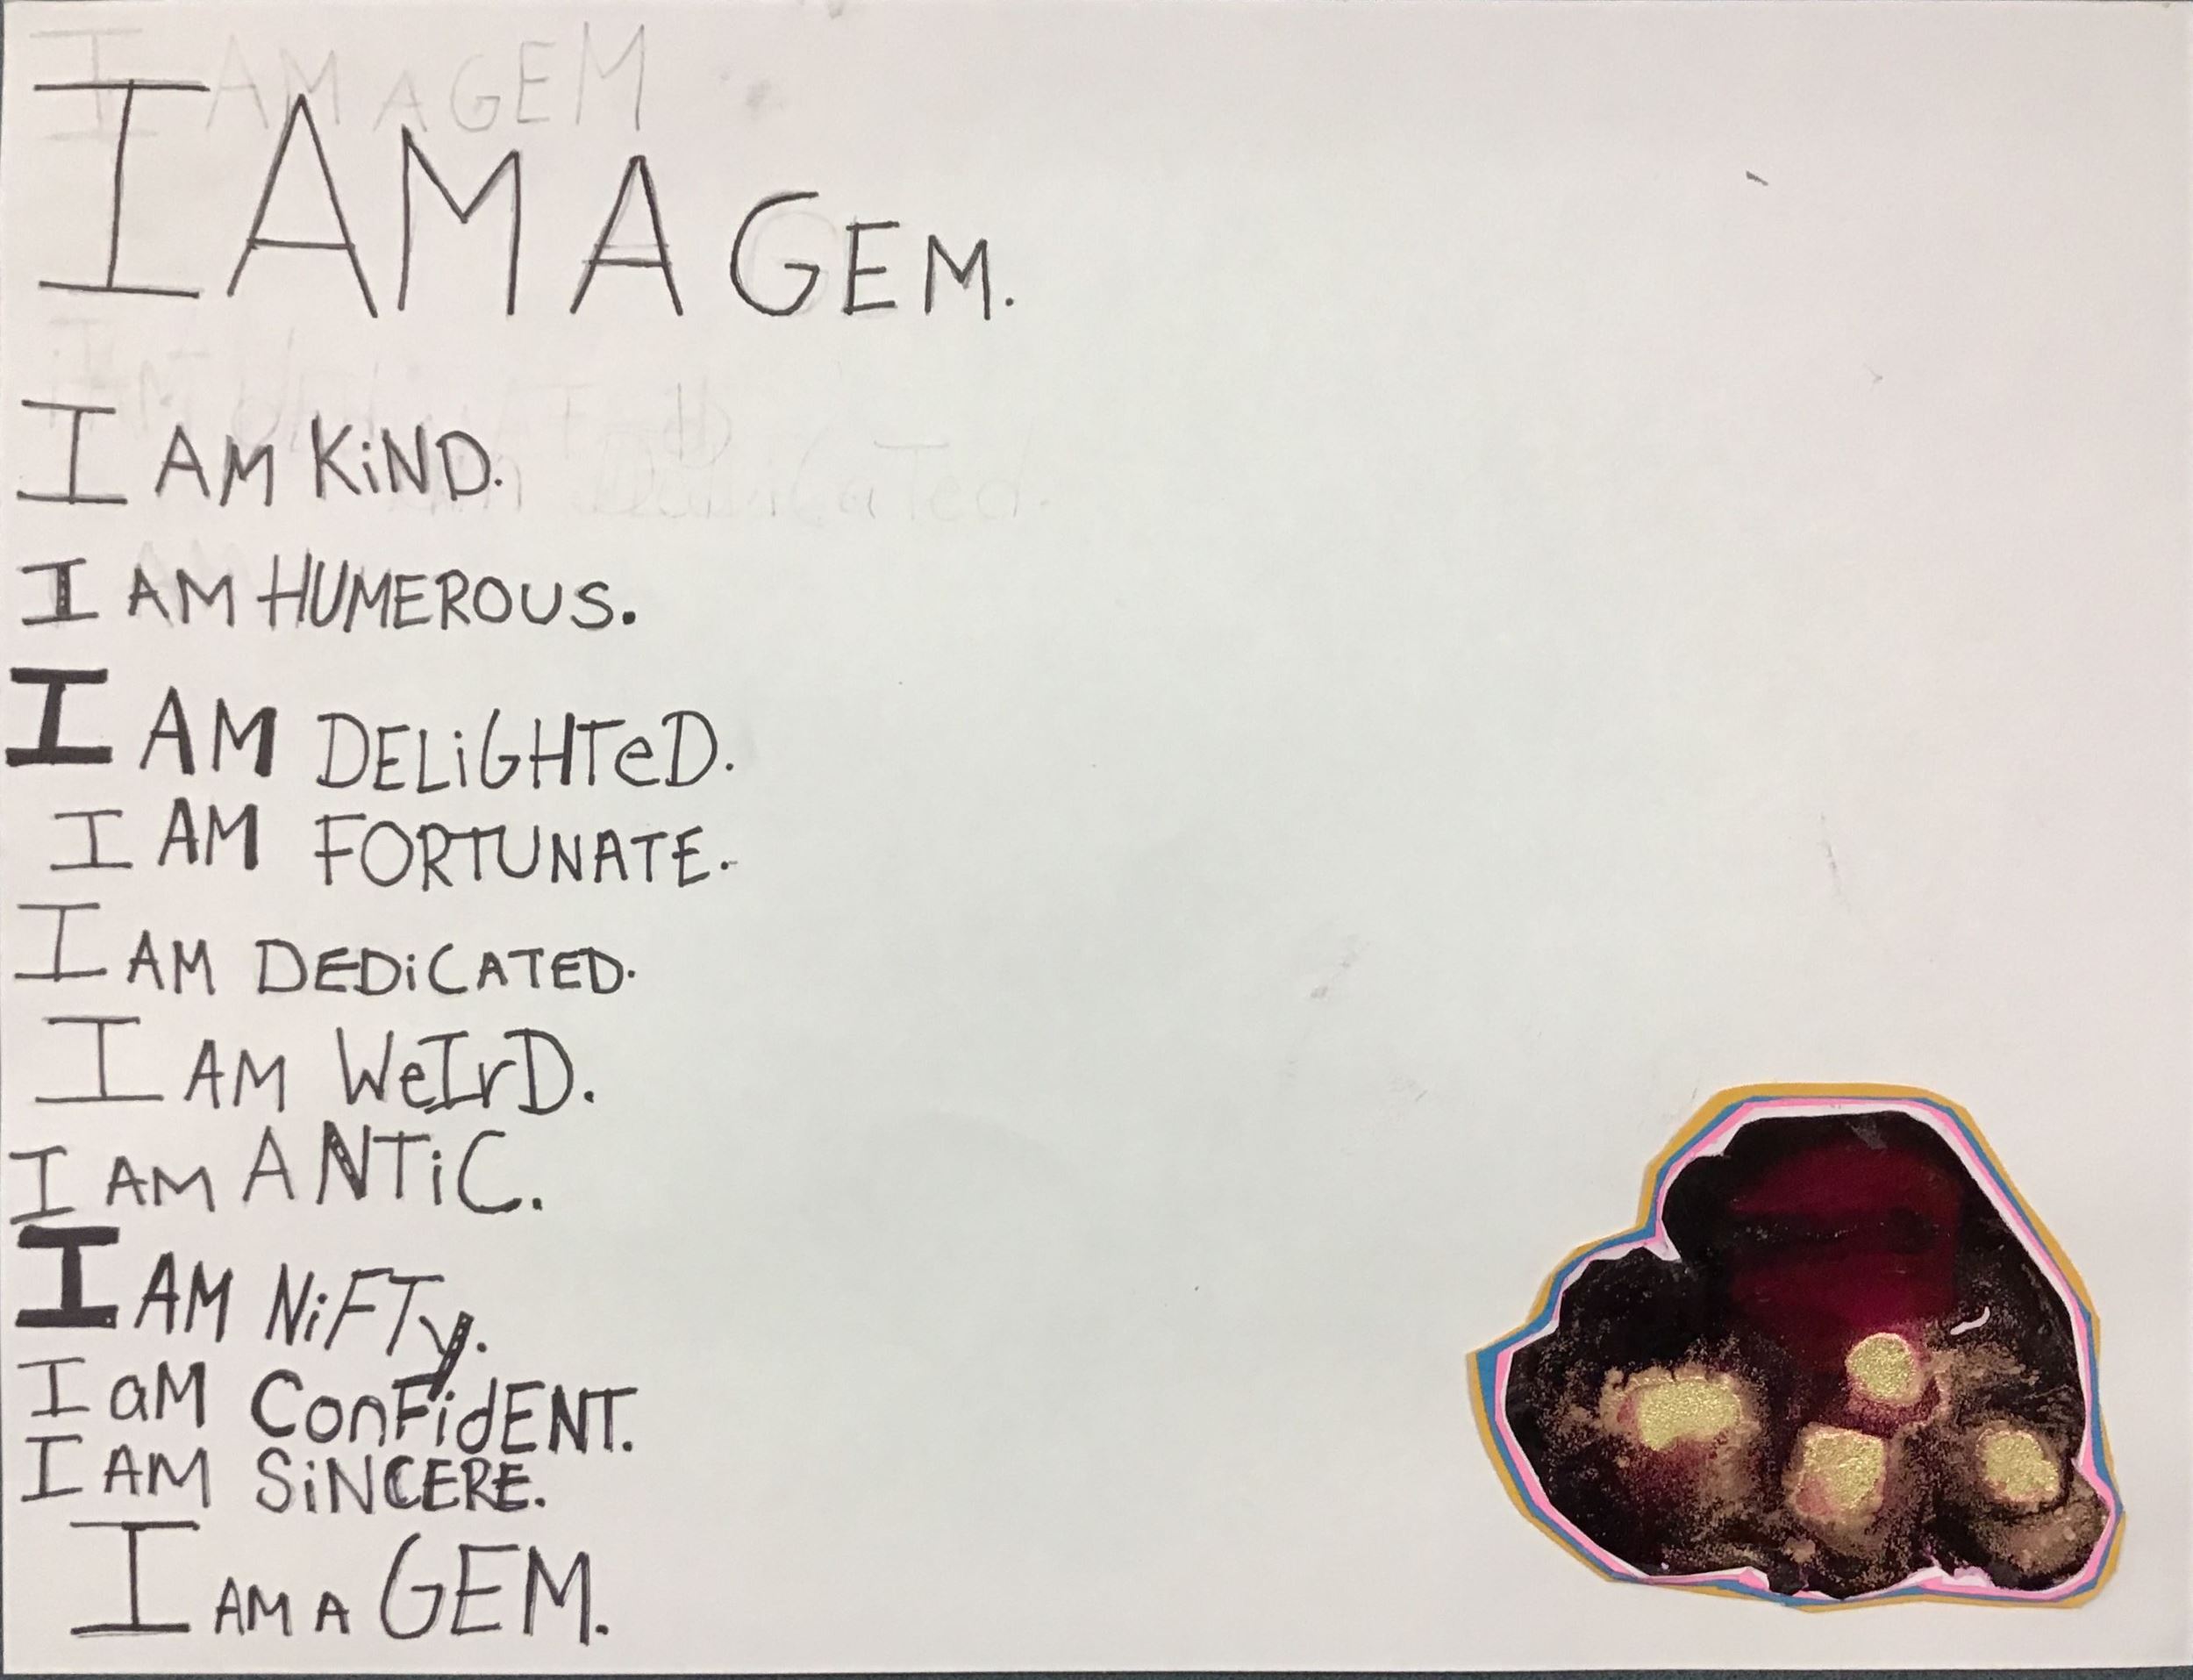 I AM A GEM
I AM A GEM.
I AM KiND.
Dedicated.
I AM HUMEROUS.
I AM DELiGHTeD.
I AM FORTUNATE.
I AM DEDiCATED.
I AM WeIrD.
I AM ANTiC.
I AM NiFTy.
I aM ConFidENT.
I AM SiNCERE.
I AM A GEM.